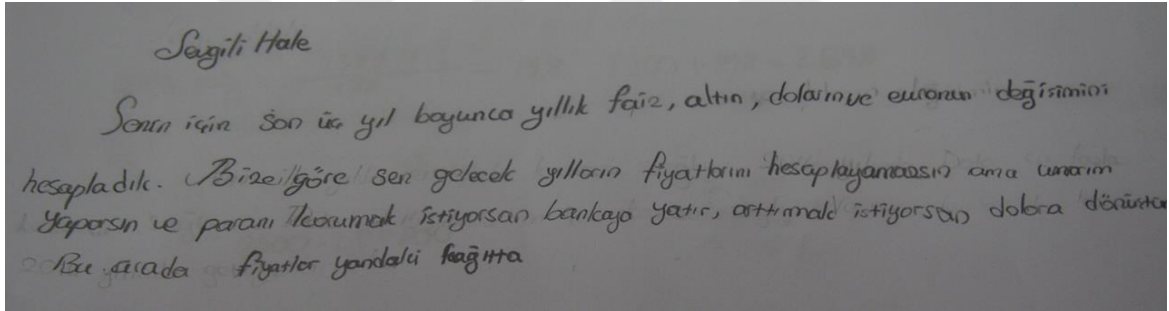 Sevgili Hale
Senin için son üç yıl boyunca yıllık faiz, altın, doların ve euronun değişimini
hesapladık. Bize göre sen gelecek yılların fiyatlarını hesaplayamazsın ama umarım
yaparsın ve paranı korumak istiyorsan bankaya yatır, arttırmak istiyorsan dolara dönüştür
Bu arada fiyatlar yandaki kağıtta